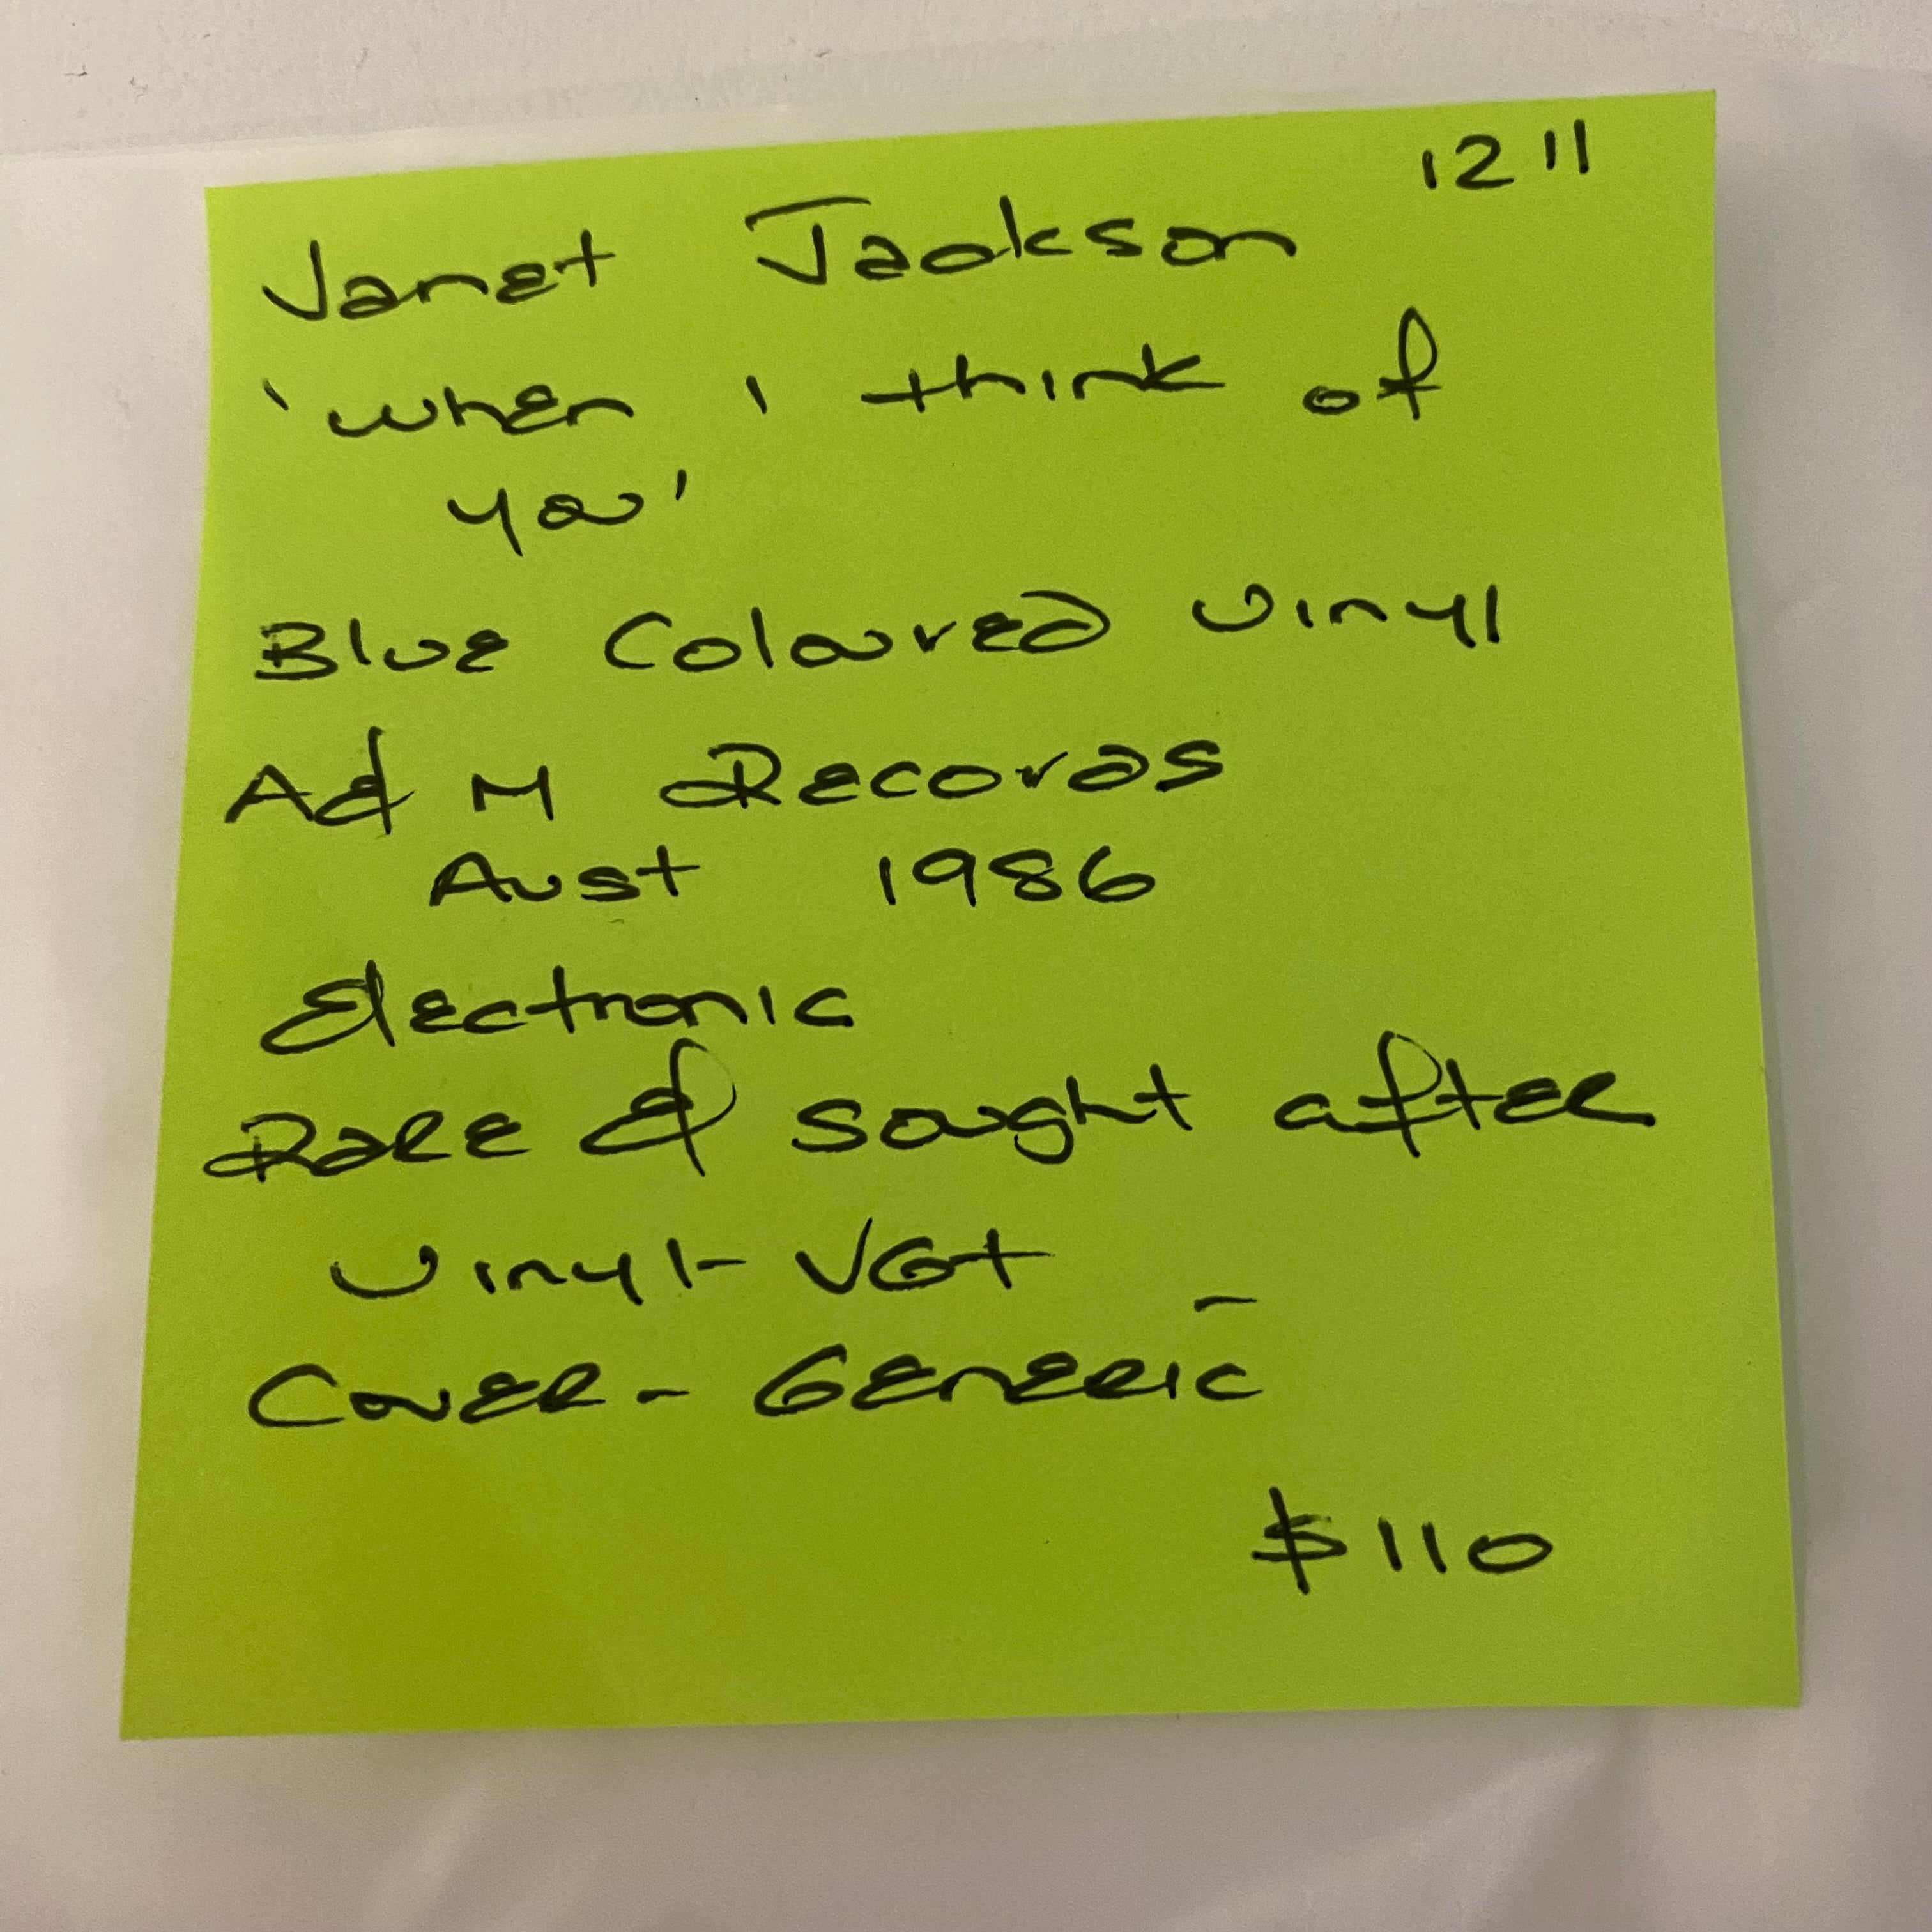 12"
Janet Jackson
'When I think of
you'
Blue Coloured Vinyl
A & M Records
Aust 1986
Electronic
Rare & sought after
Vinyl - VG+
Cover - Generic
$110